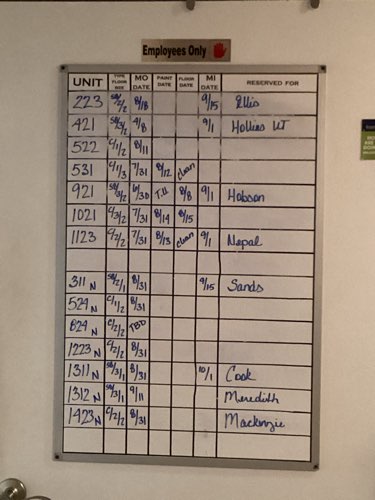 Employees Only
UNIT TYPE FLOOR MO DATE PAINT DATE FLOOR DATE MI DATE RESERVED FOR
223 8/18 9/15 Ellis
421 4/8 9/1 Hollins UT
522 C/1/2 8/11
531 C/1/3 7/31 8/12 clean
921 6/30 T.U. 8/8 9/1 Hobson
1021 C/3/2 7/31 8/14 8/15
1123 C/2/2 7/31 8/13 clean 9/1 Nepal
311 N 8/31 9/15 Sands
524 N C/1/2 8/31
824 N C/2/2 TBD
1223 N C/2/2 8/31
1311 N 8/31 10/1 Cook
1312 N 9/11 Meredith
1423 N C/2/2 8/31 Mackenzie